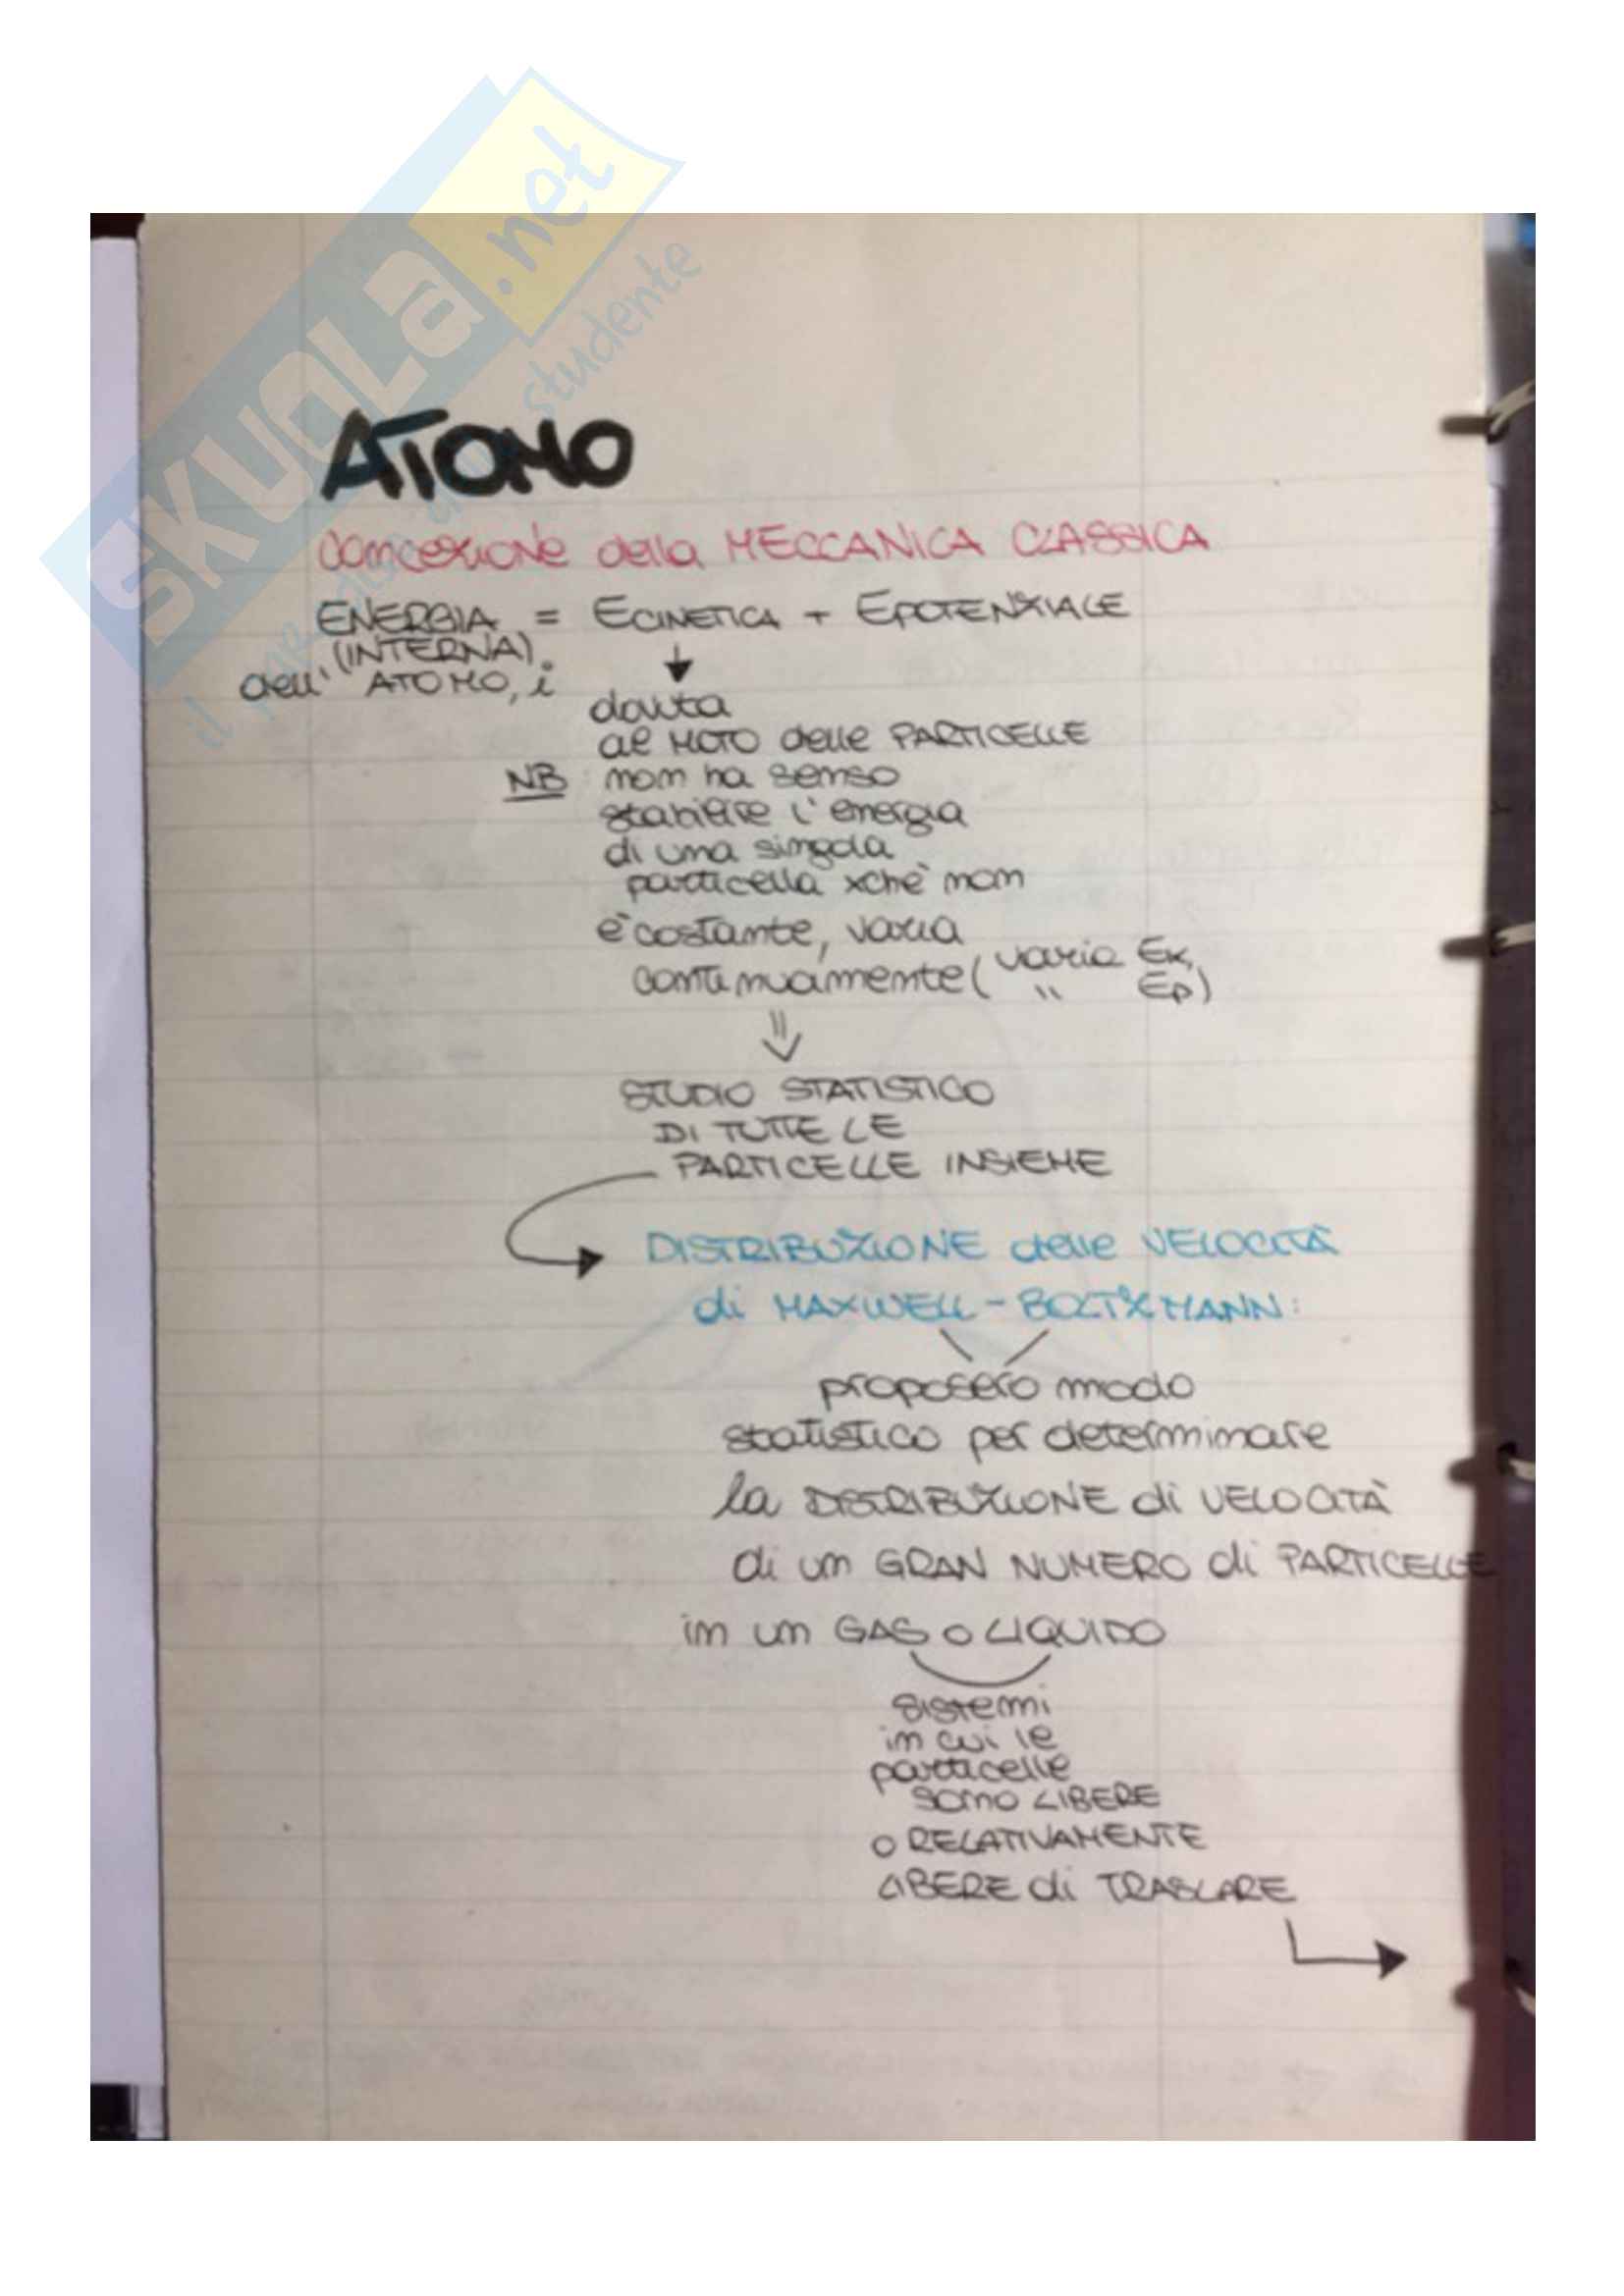 SKUOLA.net
il paradiso dello studente
ATOMO
concezione della MECCANICA CLASSICA
ENERGIA = ECINETICA + EPOTENZIALE
(INTERNA)
dell' ATOMO, i
dovuta
al MOTO delle PARTICELLE
NB: non ha senso
stabilire l'energia
di una singola
particella xchè non
è costante, varia
continuamente ( varia Ek,
" Ep)
STUDIO STATISTICO
DI TUTTE LE
PARTICELLE INSIEME
DISTRIBUZIONE delle VELOCITÀ
di MAXWELL - BOLTZMANN:
proposero modo
statistico per determinare
la DISTRIBUZIONE di VELOCITÀ
di un GRAN NUMERO di PARTICELLE
in un GAS O LIQUIDO
sistemi
in cui le
particelle
sono LIBERE
O RELATIVAMENTE
LIBERE di TRASLARE